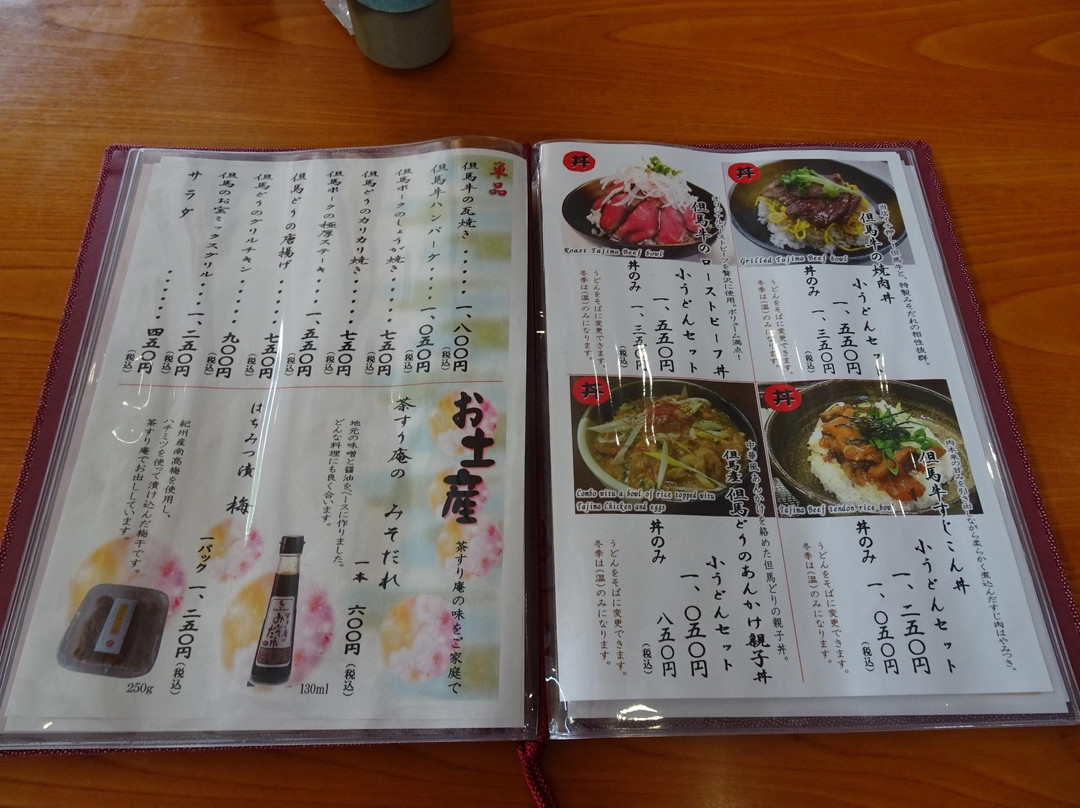 丼
但馬牛の焼肉丼
小うどんセット
一、五五〇円
丼のみ
一、三五〇円
(税込)
うどんをそばに変更できます。
冬季は(温)のみになります。
Grilled Tajima Beef bowl
丼
但馬牛のローストビーフ丼
小うどんセット
一、五五〇円
丼のみ
一、三五〇円
(税込)
うどんをそばに変更できます。
冬季は(温)のみになります。
Roast Tajima Beef bowl
丼
肉本来の甘みを引き出しながら柔らかく煮込んだすじ肉はやみつき。
但馬牛すじこん丼
小うどんセット
一、二五〇円
丼のみ
一、〇五〇円
(税込)
うどんをそばに変更できます。
冬季は(温)のみになります。
Tajima Beef tendon rice bowl
丼
中華風あんかけを絡めた但馬どりの親子丼。
但馬産但馬どりのあんかけ親子丼
小うどんセット
一、〇五〇円
丼のみ
八五〇円
(税込)
うどんをそばに変更できます。
冬季は(温)のみになります。
Combo with a bowl of rice topped with
Tajima Chicken and eggs
単品
但馬牛の瓦焼き・・・・・・一、八〇〇円(税込)
但馬牛ハンバーグ・・・・一、〇五〇円(税込)
但馬ポークのしょうが焼き・・・・七五〇円(税込)
但馬どりのカリカリ焼き・・・・七五〇円(税込)
但馬ポークの極厚ステーキ・・一、五五〇円(税込)
但馬どりの唐揚げ・・・・・・七五〇円(税込)
但馬どりのグリルチキン・・・・九〇〇円(税込)
但馬のお宝ミックスグリル・・一、二五〇円(税込)
サラダ・・・・・・四五〇円(税込)
お土産
茶すり庵の味をご家庭で
茶すり庵の みそだれ
一本 六〇〇円(税込)
地元の味噌と醤油をベースに作りました。
どんな料理にも良く合います。
130ml
はちみつ漬 梅
一パック 一、二五〇円(税込)
紀州産南高梅を使用し、
ハチミツを使って漬け込んだ梅干です。
茶すり庵でお出ししています。
250g